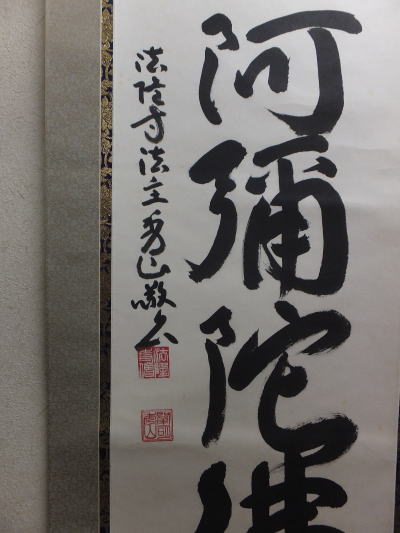 阿彌陀佛
法隆寺法主秀山敬書